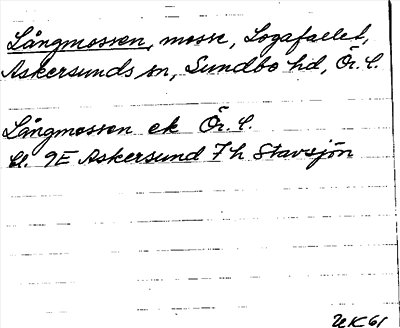 Långmossen, mosse, Logafallet,
Askersunds sn, Sundbo hd, Ör. l.
Långmossen ek Ör. l.
bl. 9E Askersund 7h Stavsjön
UK61